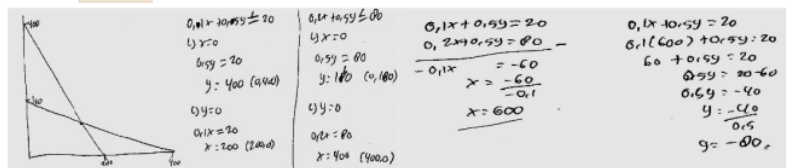 400
160
200
400
0,1x + 0,5y ≤ 20
↳ x=0
0,5y = 20
y = 400 (0,400)
↳ y=0
0,1x = 20
x = 200 (200,0)
0,2x + 0,5y ≤ 80
↳ x=0
0,5y = 80
y: 160 (0,160)
↳ y=0
0,2x = 80
x = 400 (400,0)
0,1x + 0,5y = 20
0,2x + 0,5y = 80 -
-0,1x = -60
x = -60
-0,1
x = 600
0,1x + 0,5y = 20
0,1(600) + 0,5y = 20
60 + 0,5y = 20
0,5y = 20-60
0,5y = -40
y = -40
0,5
y = -80,